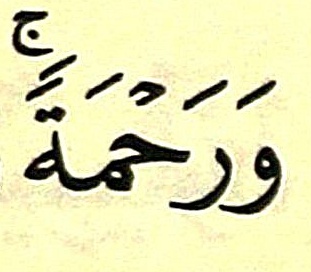 وَرَحْمَةًۚ